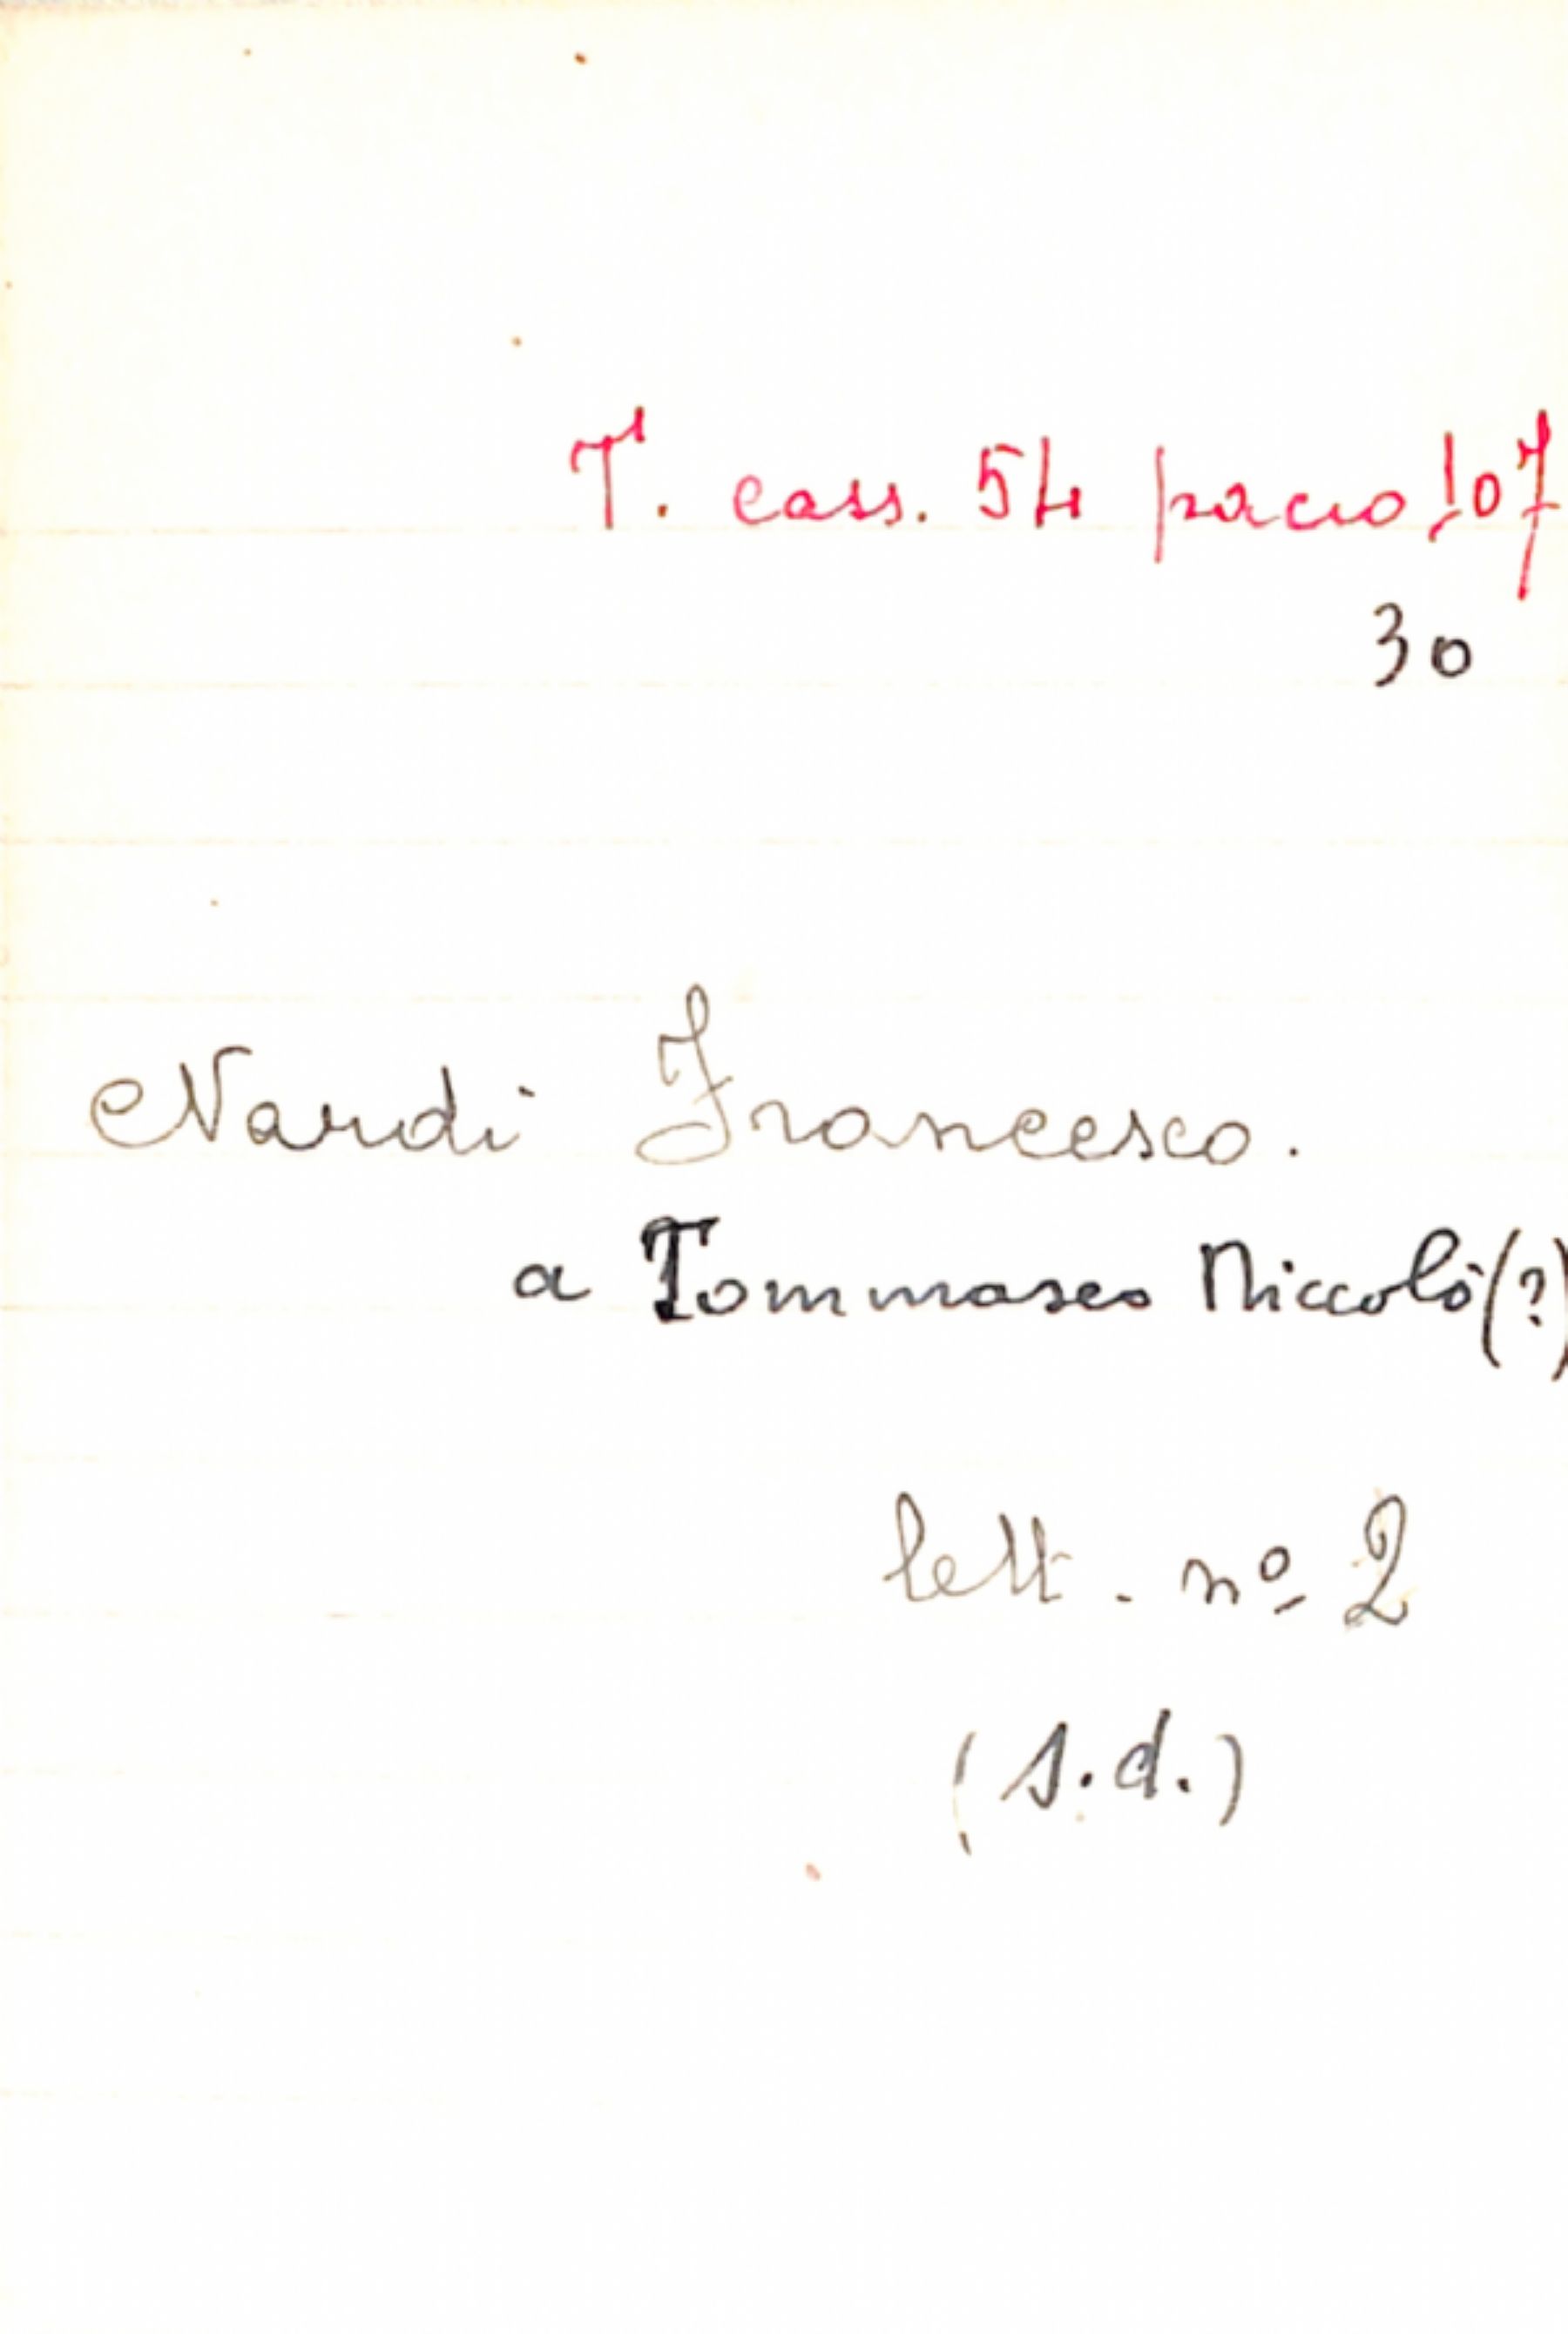 T. cass. 54 pacco 107
30
Nardi Francesco.
a Tommaseo Niccolò (?)
lett. nº 2
(s.d.)